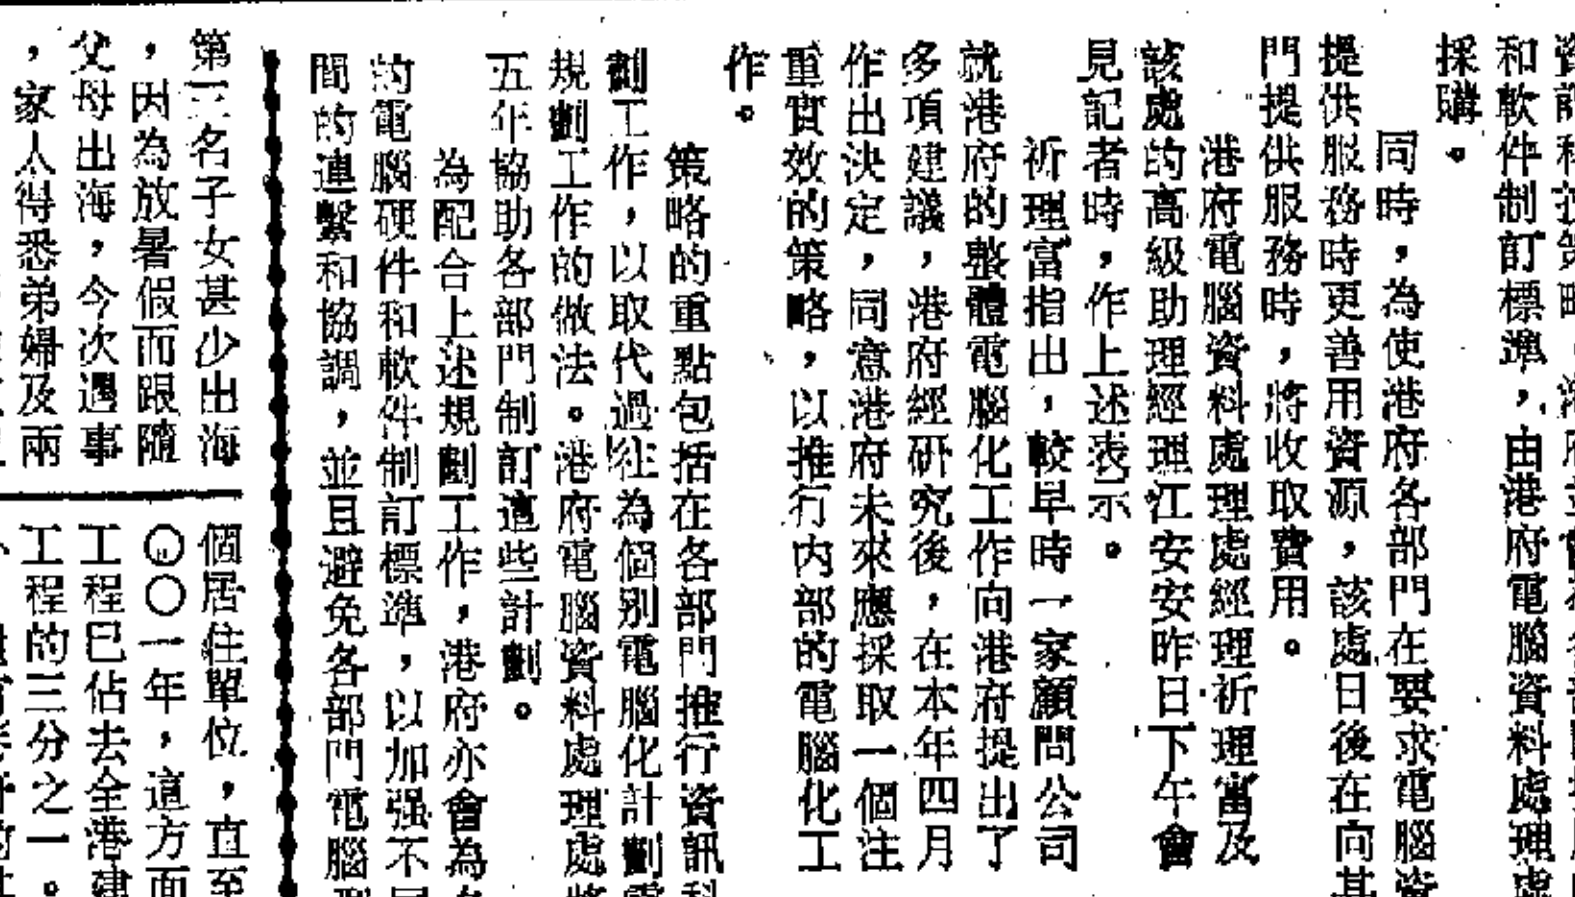 和軟件制訂標準，由港府電腦資料處理處
採購。
同時，為使港府各部門在要求電腦資
提供服務時更善用資源，該處日後在向其
門提供服務時，將收取費用。
港府電腦資料處理處經理祈理富及
該處的高級助理經理江安安昨日下午會
見記者時，作上述表示。
祈理富指出，較早時一家顧問公司
就港府的整體電腦化工作向港府提出了
多項建議，港府經研究後，在本年四月
作出決定，同意港府未來應採取一個注
重實效的策略，以推行內部的電腦化工
作。
策略的重點包括在各部門推行資訊科
劃工作，以取代過往為個別電腦化計劃
規劃工作的做法。港府電腦資料處理處將
五年協助各部門制訂這些計劃。
為配合上述規劃工作，港府亦會為
的電腦硬件和軟件制訂標準，以加强不同
間的連繫和協調，並且避免各部門電腦
第三名子女甚少出海
，因為放暑假而跟隨
父母出海，今次遇事
，家人得悉弟婦及兩
個居住單位，直至
〇〇一年，這方面
工程已佔去全港建
工程的三分之一。